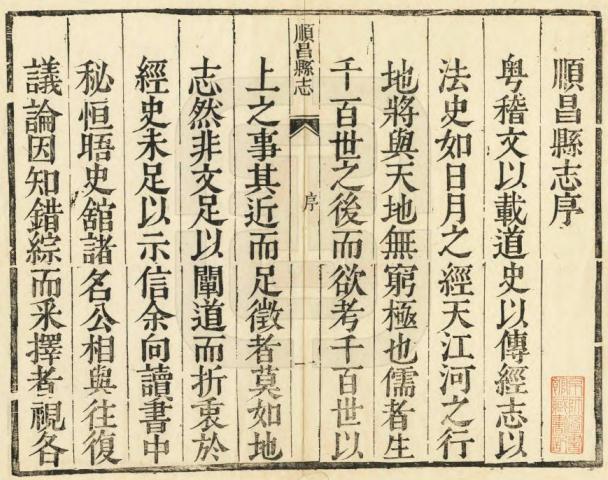 順昌縣志序
粵稽文以載道史以傳經志以
法史如日月之經天江河之行
地將與天地無窮極也儒者生
千百世之後而欲考千百世以
順昌縣志
序
上之事其近而足徵者莫如地
志然非文足以闡道而折衷於
經史未足以示信余向讀書中
秘恒晤史舘諸名公相與往復
議論因知錯綜而釆擇者視各